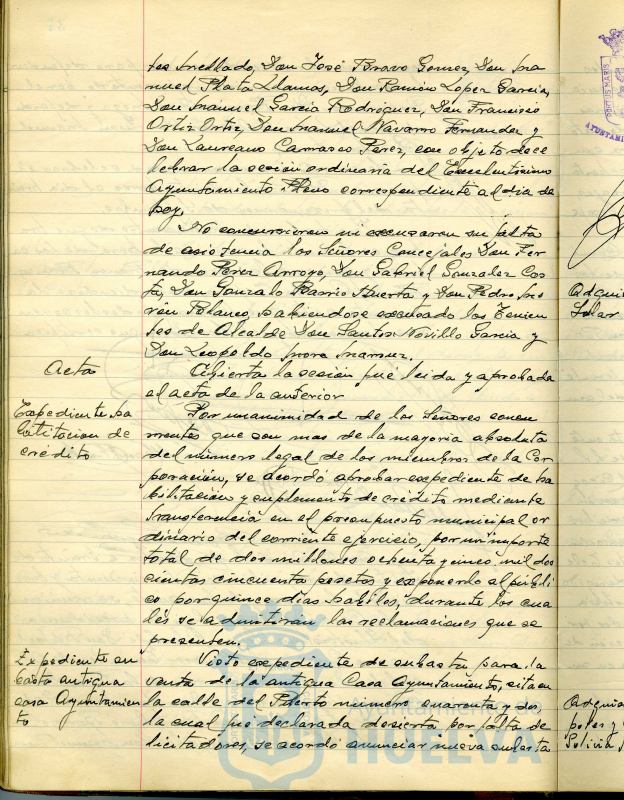 Don José Bravo Gomez, Don Ma
nuel Plata Llamas, Don Ramón Lopez Garcia,
Don Manuel Garcia Rodriguez, Don Francisco
Ortiz Ortiz, Don Manuel Navarro Fernandez y
Don Laureano Carrasco Perez, con objeto de ce
lebrar la sesión ordinaria del Excelentisimo
Ayuntamiento Pleno correspondiente al dia de
hoy.
No concurrieron ni excusaron su falta
de asistencia los Señores Concejales Don Fer
nando Perez Arroyo, Don Gabriel Gonzalez Cos
ta, Don Gonzalo Barrio Huerta y Don Pedro
Polanco, habiendose excusado los Tenien
tes de Alcalde Don Santos Novillo Garcia y
Don Leopoldo
Acta
Abierta la sesión fué leida y aprobada
el acta de la anterior
Expediente ha
bilitacion de
crédito
Por unanimidad de los Señores concu
rrentes que son mas de la mayoria absoluta
del número legal de los miembros de la Cor
poración, se acordó aprobar expediente de ha
bilitación y suplemento de crédito mediante
transferencia en el presupuesto municipal or
dinario del corriente ejercicio, por un importe
total de dos millones ochenta y cinco mil dos
cientas cincuenta pesetas y exponerlo al públi
co por quince dias habiles, durante los cua
les se admitiran las reclamaciones que se
presenten.
Expediente su
basta antigua
casa Ayuntamien
to
Visto expediente de subasta para la
venta de la antigua Casa Ayuntamiento, sita en
la calle del Puerto número cuarenta y dos,
la cual fué declarada desierta por falta de
licitadores, se acordó anunciar nueva subasta
HUELVA
Solar
PORTUS MARIS